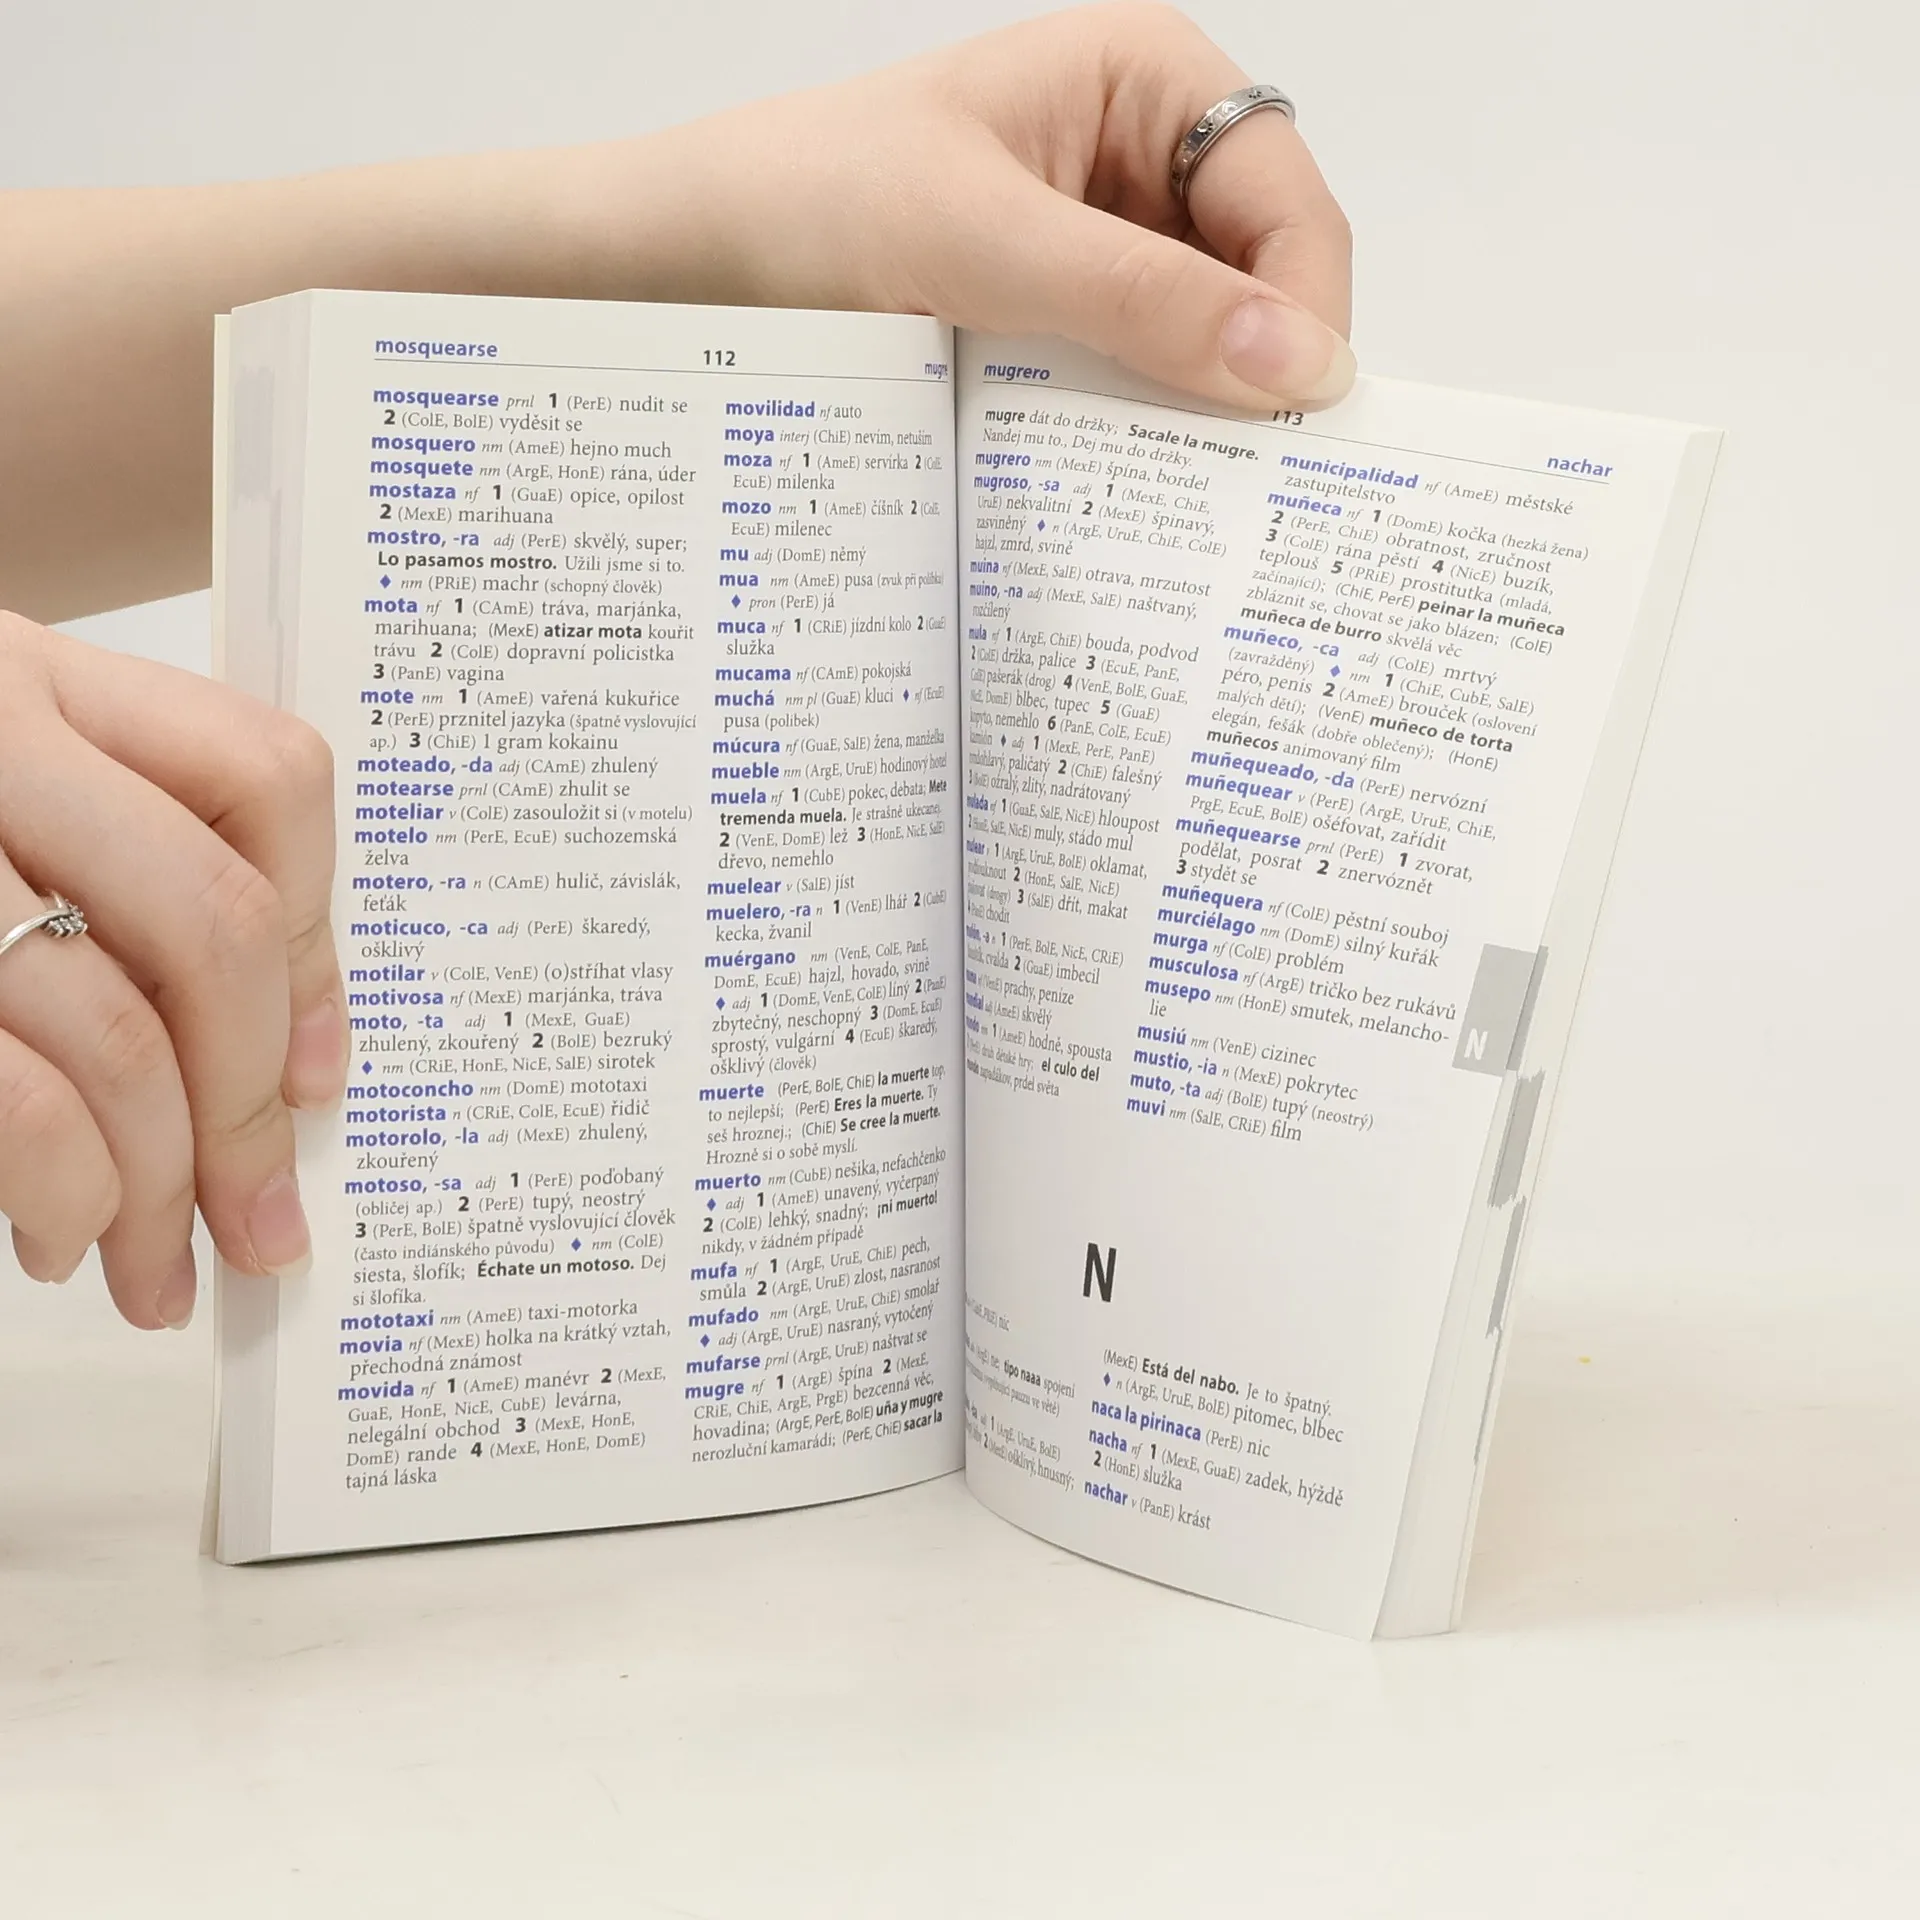 mosquearse 112 mugre
mosquearse prnl 1 (PerE) nudit se
2 (ColE, BolE) vyděsit se
mosquero nm (AmeE) hejno much
mosquete nm (ArgE, HonE) rána, úder
mostaza nf 1 (GuaE) opice, opilost
2 (MexE) marihuana
mostro, -ra adj (PerE) skvělý, super;
Lo pasamos mostro. Užili jsme si to.
♦ nm (PRiE) machr (schopný člověk)
mota nf 1 (CAmE) tráva, marjánka,
marihuana; (MexE) atizar mota kouřit
trávu 2 (ColE) dopravní policistka
3 (PanE) vagina
mote nm 1 (AmeE) vařená kukuřice
2 (PerE) prznitel jazyka (špatně vyslovující
ap.) 3 (ChiE) 1 gram kokainu
moteado, -da adj (CAmE) zhulený
motearse prnl (CAmE) zhulit se
moteliar v (ColE) zasouložit si (v motelu)
motelo nm (PerE, EcuE) suchozemská
želva
motero, -ra n (CAmE) hulič, závislák,
feťák
moticuco, -ca adj (PerE) škaredý,
ošklivý
motilar v (ColE, VenE) (o)stříhat vlasy
motivosa nf (MexE) marjánka, tráva
moto, -ta adj 1 (MexE, GuaE)
zhulený, zkouřený 2 (BolE) bezruký
♦ nm (CRiE, HonE, NicE, SalE) sirotek
motoconcho nm (DomE) mototaxi
motorista n (CRiE, ColE, EcuE) řidič
motorolo, -la adj (MexE) zhulený,
zkouřený
motoso, -sa adj 1 (PerE) poďobaný
(obličej ap.) 2 (PerE) tupý, neostrý
3 (PerE, BolE) špatně vyslovující člověk
(často indiánského původu) ♦ nm (ColE)
siesta, šlofík; Échate un motoso. Dej
si šlofíka.
mototaxi nm (AmeE) taxi-motorka
movia nf (MexE) holka na krátký vztah,
přechodná známost
movida nf 1 (AmeE) manévr 2 (MexE,
GuaE, HonE, NicE, CubE) levárna,
nelegální obchod 3 (MexE, HonE,
DomE) rande 4 (MexE, HonE, DomE)
tajná láska
movilidad nf auto
moya interj (ChiE) nevím, netuším
moza nf 1 (AmeE) servírka 2 (ColE,
EcuE) milenka
mozo nm 1 (AmeE) číšník 2 (ColE,
EcuE) milenec
mu adj (DomE) němý
mua nm (AmeE) pusa (zvuk při polibku)
♦ pron (PerE) já
muca nf 1 (CRiE) jízdní kolo 2 (GuaE)
služka
mucama nf (CAmE) pokojská
muchá nm pl (GuaE) kluci ♦ nf (EcuE)
pusa (polibek)
múcura nf (GuaE, SalE) žena, manželka
mueble nm (ArgE, UruE) hodinový hotel
muela nf 1 (CubE) pokec, debata; Mete
tremenda muela. Je strašně ukecanej.
2 (VenE, DomE) lež 3 (HonE, NicE, SalE)
dřevo, nemehlo
muelear v (SalE) jíst
muelero, -ra n 1 (VenE) lhář 2 (CubE)
kecka, žvanil
muérgano nm (VenE, ColE, PanE,
DomE, EcuE) hajzl, hovado, svině
♦ adj 1 (DomE, VenE, ColE) líný 2 (PanE)
zbytečný, neschopný 3 (DomE, EcuE)
sprostý, vulgární 4 (EcuE) škaredý,
ošklivý (člověk)
muerte (PerE, BolE, ChiE) la muerte top,
to nejlepší; (PerE) Eres la muerte. Ty
seš hroznej.; (ChiE) Se cree la muerte.
Hrozně si o sobě myslí.
muerto nm (CubE) nešika, nefachčenko
♦ adj 1 (AmeE) unavený, vyčerpaný
2 (ColE) lehký, snadný; ¡ni muerto!
nikdy, v žádném případě
mufa nf 1 (ArgE, UruE, ChiE) pech,
smůla 2 (ArgE, UruE) zlost, nasranost
mufado nm (ArgE, UruE, ChiE) smolař
♦ adj (ArgE, UruE) nasraný, vytočený
mufarse prnl (ArgE, UruE) naštvat se
mugre nf 1 (ArgE) špína 2 (MexE,
CRiE, ChiE, ArgE, PrgE) bezcenná věc,
hovadina; (ArgE, PerE, BolE) uña y mugre
nerozluční kamarádi; (PerE, ChiE) sacar la
mugrero 113 nachar
mugre dát do držky; Sacale la mugre.
Nandej mu to., Dej mu do držky.
mugrero nm (MexE) špína, bordel
mugroso, -sa adj 1 (MexE, ChiE,
UruE) nekvalitní 2 (MexE) špinavý,
zasviněný ♦ n (ArgE, UruE, ChiE, ColE)
hajzl, zmrd, svině
muina nf (MexE, SalE) otrava, mrzutost
muino, -na adj (MexE, SalE) naštvaný,
rozčílený
mula nf 1 (ArgE, ChiE) bouda, podvod
2 (ColE) držka, palice 3 (EcuE, PanE,
ColE) pašerák (drog) 4 (VenE, BolE, GuaE,
NicE, DomE) blbec, tupec 5 (GuaE)
kopyto, nemehlo 6 (PanE, ColE, EcuE)
kamión ♦ adj 1 (MexE, PerE, PanE)
tvrdohlavý, paličatý 2 (ChiE) falešný
3 (BolE) ožralý, zlitý, nadrátovaný
mulada nf 1 (GuaE, SalE, NicE) hloupost
2 (HonE, SalE, NicE) muly, stádo mul
mulear v 1 (ArgE, UruE, BolE) oklamat,
2 (HonE, SalE, NicE)
(drogy) 3 (SalE) dřít, makat
chodit
1 (PerE, BolE, NicE, CRiE)
cvalda 2 (GuaE) imbecil
(VenE) prachy, peníze
mundial adj (AmeE) skvělý
mundo nm 1 (AmeE) hodně, spousta
druh dětské hry; el culo del
mundo zapadákov, prdel světa
municipalidad nf (AmeE) městské
zastupitelstvo
muñeca nf 1 (DomE) kočka (hezká žena)
2 (PerE, ChiE) obratnost, zručnost
3 (ColE) rána pěstí 4 (NicE) buzík,
teplouš 5 (PRiE) prostitutka (mladá,
začínající); (ChiE, PerE) peinar la muñeca
zbláznit se, chovat se jako blázen; (ColE)
muñeca de burro skvělá věc
muñeco, -ca adj (ColE) mrtvý
(zavražděný) ♦ nm 1 (ChiE, CubE, SalE)
péro, penis 2 (AmeE) brouček (oslovení
malých dětí); (VenE) muñeco de torta
elegán, fešák (dobře oblečený); (HonE)
muñecos animovaný film
muñequeado, -da (PerE) nervózní
muñequear v (PerE) (ArgE, UruE, ChiE,
PrgE, EcuE, BolE) ošéfovat, zařídit
muñequearse prnl (PerE) 1 zvorat,
podělat, posrat 2 znervóznět
3 stydět se
muñequera nf (ColE) pěstní souboj
murciélago nm (DomE) silný kuřák
murga nf (ColE) problém
musculosa nf (ArgE) tričko bez rukávů
musepo nm (HonE) smutek, melancho-
lie
musiú nm (VenE) cizinec
mustio, -ia n (MexE) pokrytec
muto, -ta adj (BolE) tupý (neostrý)
muvi nm (SalE, CRiE) film
N
N
PRiE) nic
(ArgE) ne; tipo naaa spojení
pauzu ve větě)
adj 1 (ArgE, UruE, BolE)
2 (MexE) ošklivý, hnusný;
(MexE) Está del nabo. Je to špatný.
♦ n (ArgE, UruE, BolE) pitomec, blbec
naca la pirinaca (PerE) nic
nacha nf 1 (MexE, GuaE) zadek, hýždě
2 (HonE) služka
nachar v (PanE) krást